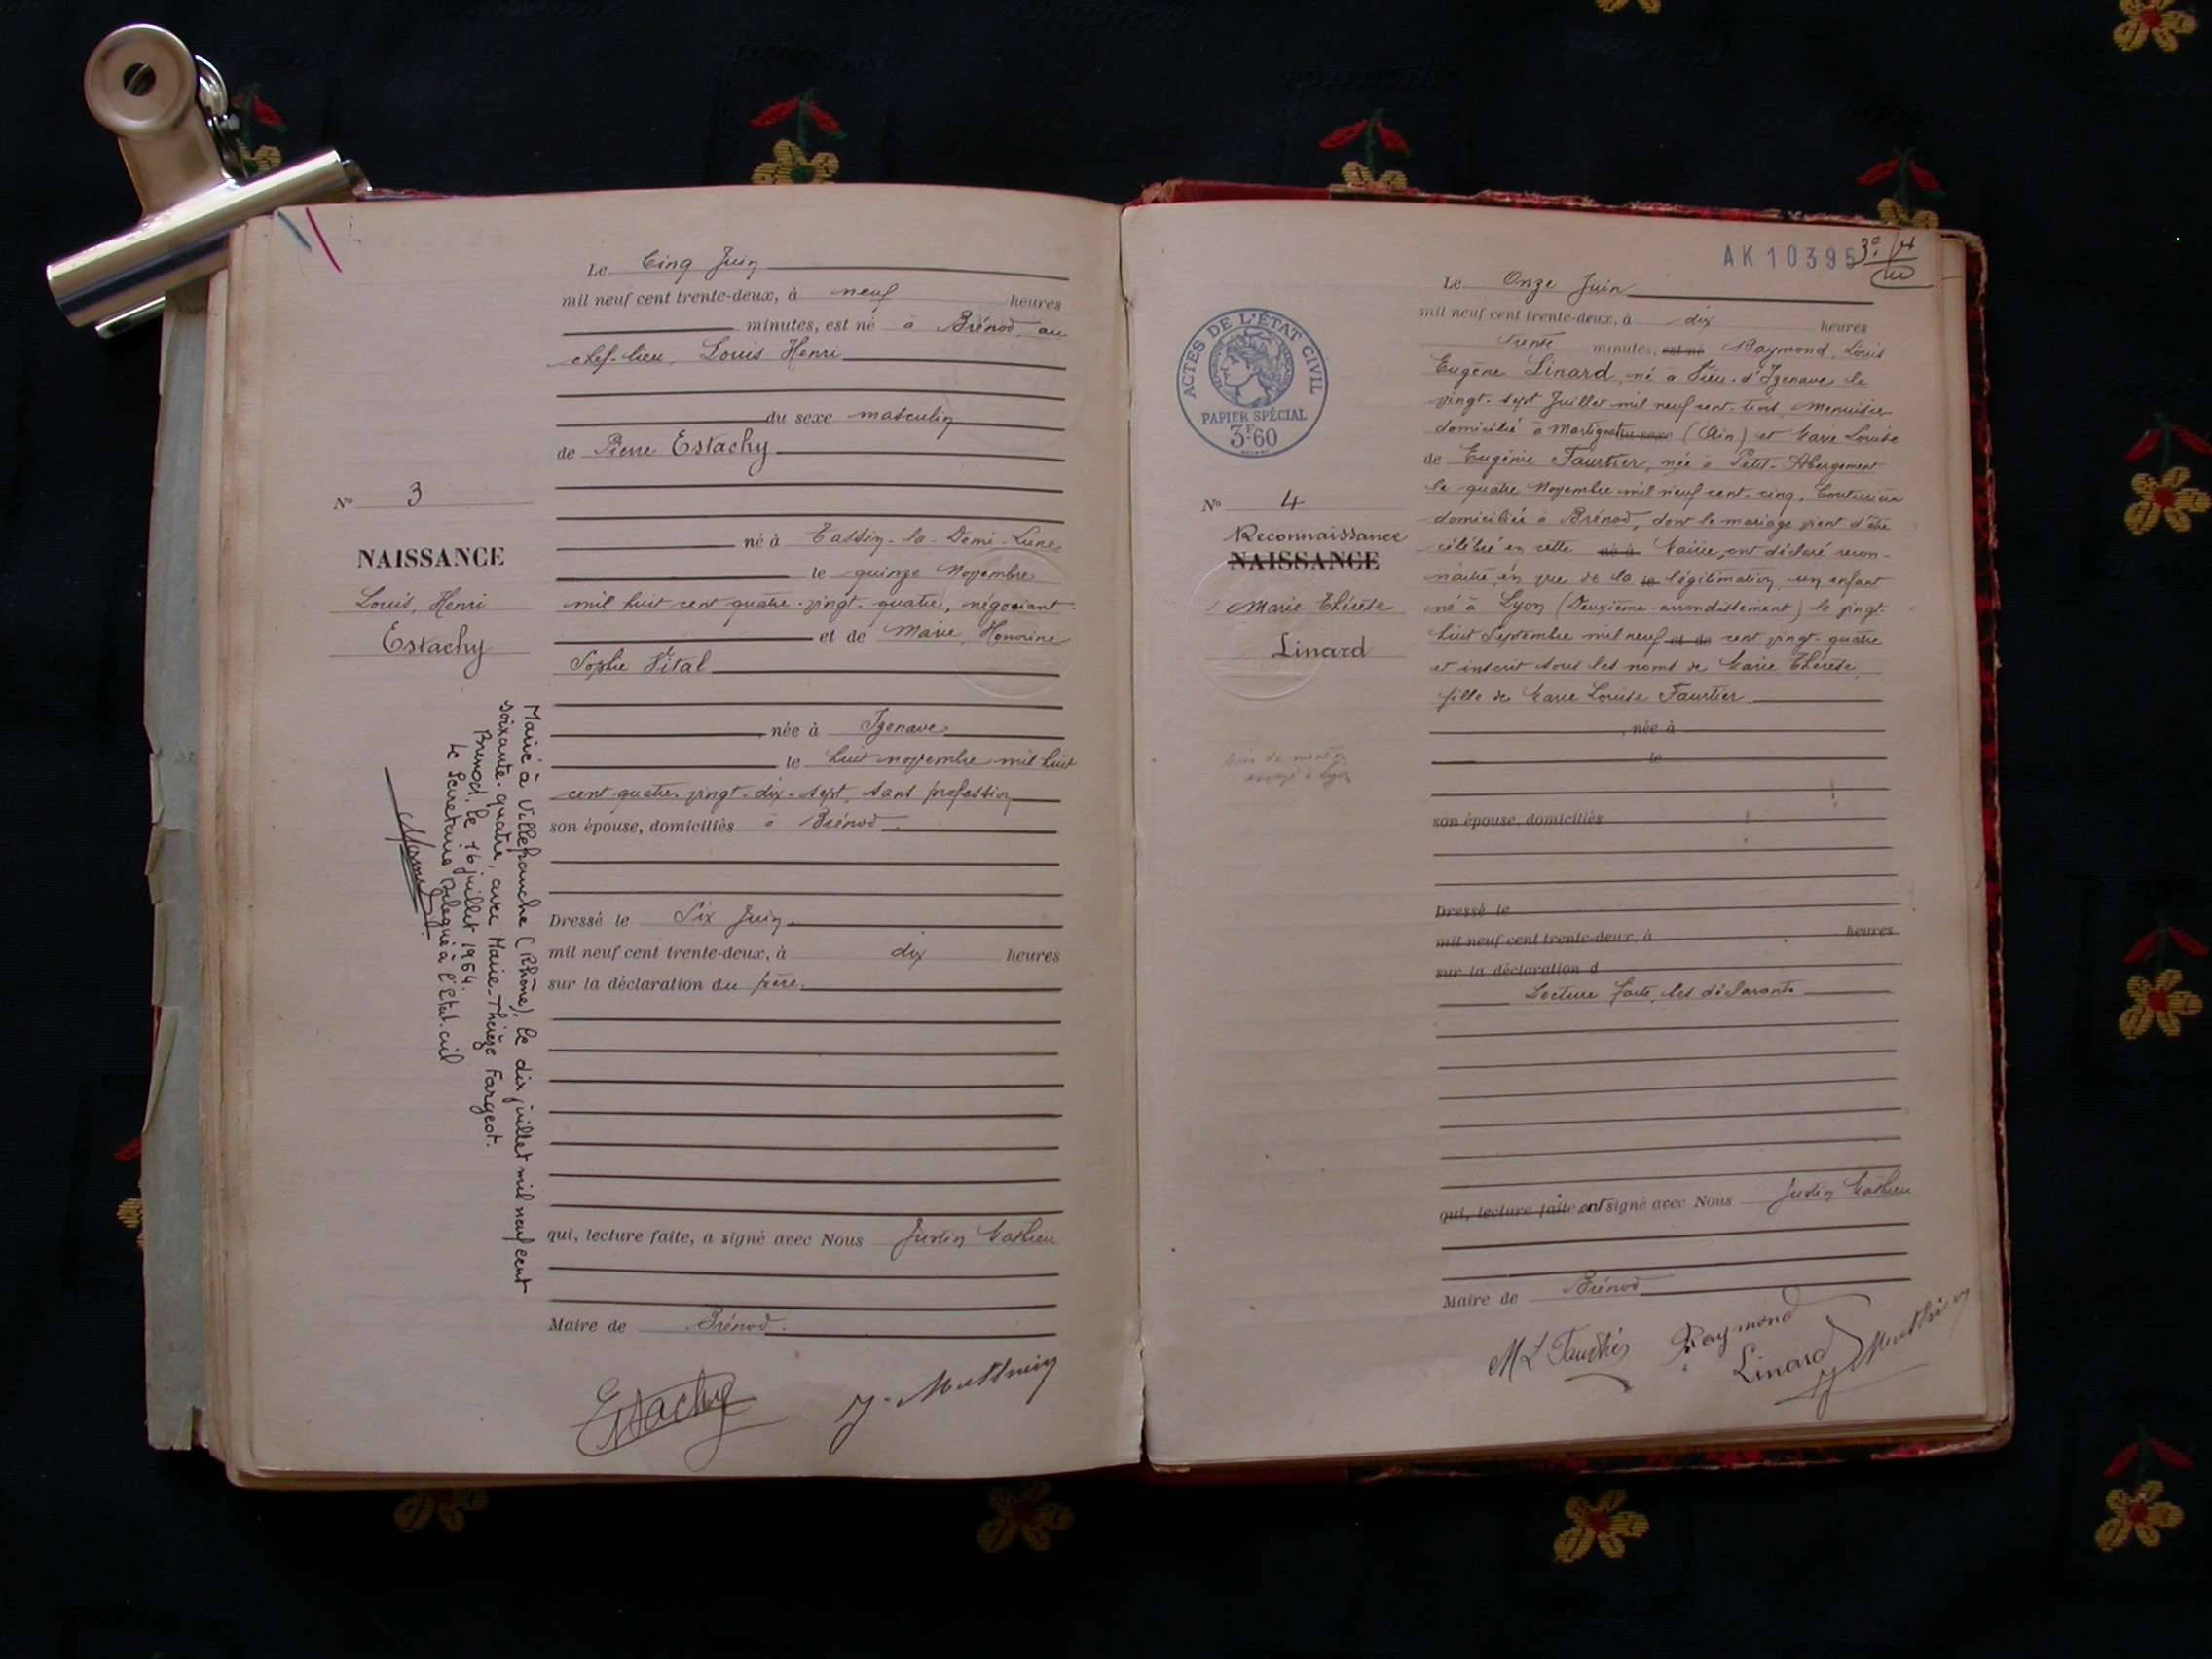 Le Cinq Juin
mil neuf cent trente-deux, à neuf heures
minutes, est né à Brénod, au
chef-lieu, Louis Henri
du sexe masculin
de Pierre Estachy
né à Tassin-la-Demi-Lune
le quinze Novembre
mil huit cent quatre-vingt-quatre, négociant
et de Marie, Honorine
Sophie Vital
née à Izenave
le huit novembre mil huit
cent quatre-vingt-dix-sept, sans profession
son épouse, domiciliés à Brénod.
Dressé le Six Juin
mil neuf cent trente-deux, à dix heures
sur la déclaration du père.
qui, lecture faite, a signé avec Nous Justin Mathieu
Maire de Brénod.
Estachy
N° 3
NAISSANCE
Louis, Henri
Estachy
Marié à Villefranche (Rhône), le dix juillet mil neuf cent
soixante-quatre, avec Marie-Thérèse Fargeot.
Brenod, le 16 juillet 1964.
Le Secrétaire délégué à l'Etat-civil
AK 10395
ACTES DE L'ÉTAT CIVIL
PAPIER SPÉCIAL
3F60
N° 4
Reconnaissance
NAISSANCE
Marie Thérèse
Linard
Le Onze Juin
mil neuf cent trente-deux, à dix heures
trente minutes, est né Raymond, Louis
Eugène Linard, né à Vieu-d'Izenave le
vingt-sept Juillet mil neuf cent-trois, Menuisier
domicilié à Martignat du sexe (Ain) et Marie Louise
de Eugénie Faurtier, née à Petit-Abergement
le quatre Novembre mil neuf cent-cinq, Couturière
domiciliée à Brénod, dont le mariage vient d'être
célébré en cette né à Mairie, ont déclaré recon-
naître, en vue de la le légitimation, un enfant
né à Lyon (Deuxième-arrondissement) le vingt-
huit Septembre mil neuf et de cent vingt-quatre
et inscrit sous les noms de Marie Thérèse,
fille de Marie Louise Faurtier
née à
le
son épouse, domiciliés
Dressé le
mil neuf cent trente-deux, à heures
sur la déclaration d
Lecture faite, les déclarants
qui, lecture faite ont signé avec Nous Justin Mathieu
Maire de Brénod
Raymond
Linard